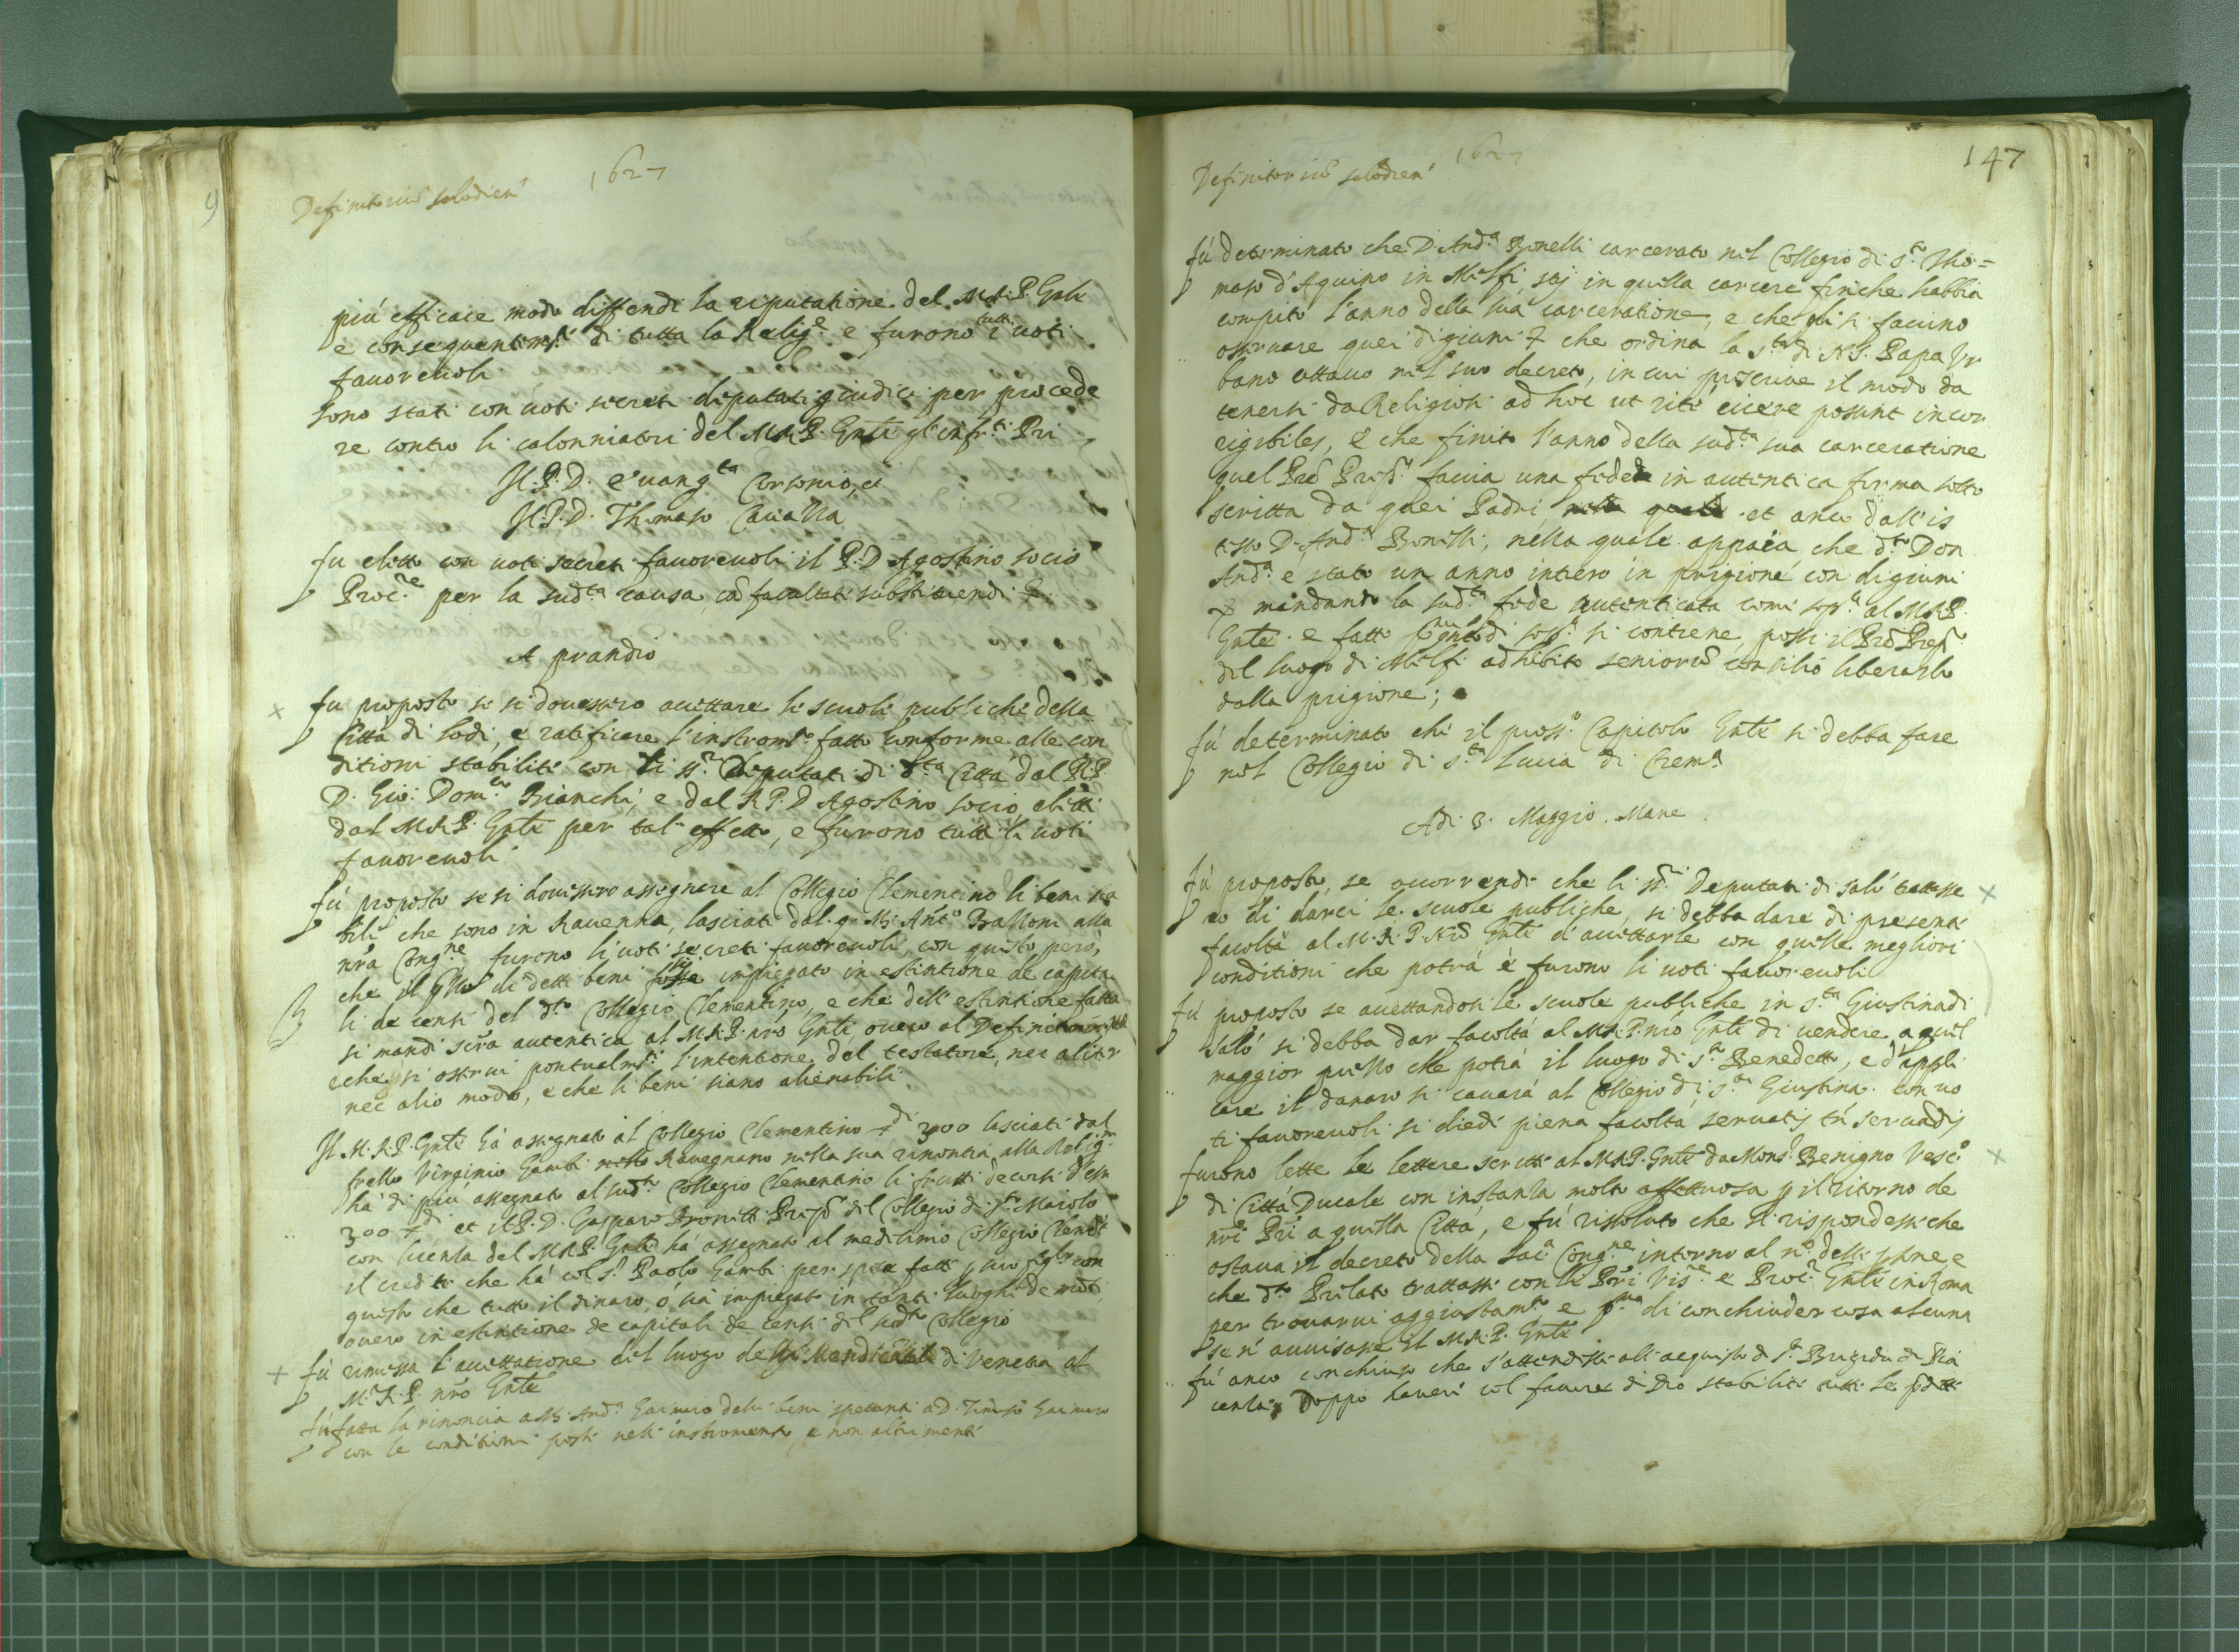 1627
Definitoriũ Salodien'
più efficace modo diffendi la riputatione del M.R.P. Gn̄le
e conseguentemte di tutta la Religne e furono tutti i uoti
fauoreuoli
sono stati con uoti secreti deputati giudici per procede
re contro li calonniatori del M.R.P. Gn̄le gl'infrti Pri
Il P. D. Euangta Corsonio, et
Il P. D. Thomaso Caualla
fu eletto con uoti secreti fauoreuoli il P. D Agostino socio
Procre per la sudta causa, cũ facultate substituendi &
A prandio
fu proposto se si douessero accettare le scuole publiche della
Città di Lodi, e ratificare l'instromto fatto conforme alle con
ditioni stabilite con li ssri Deputati di dta Città dal R.P.
D. Gio: Domco Bianchi, e dal R P. D Agostino socio, eletti
dal M.R.P. Gn̄le per tal effetto, e furono tutti li uoti
fauoreuoli
fù proposto se si douessero assegnare al Collegio Clementino li beni sta
bili che sono in Rauenna, lasciati dal q. M. Anto Balloni alla
nr̃a Congne furono li uoti secreti fauoreuoli, con questo però,
che il di detti beni sij impiegato in estintione de capita
li de censi del dto Collegio Clementino, e che dell'estintione fatta
si mandi scr̃a autentica al M.R.P. nr̃o Gn̄le, ouero al Definitorio
e che si osserui pontualmte l'intentione del testatore, nec aliter
nec alio modo, e che li beni siano alienabili
Il M.R.P. Gn̄le hà assegnato al Collegio Clementino di 3000 lasciati dal
frello Virginio Gambi Rauegnano nella sua rinontia alla Religne
hà di più assegnato al sudto Collegio Clementino li frutti decorsi d'essi
300 di et il P. D. Gasparo Bronetti Prep° del Collegio di sto Maiolo
con licenza del M.R.P. Gn̄le hà assegnato al medesimo Collegio Clemto
il credito che hà col sr Paolo Gambi per spesa fatte con
questo che tutto il dinaro, ò sia impiegato in tanti luoghi de monti,
ouero in estintione de capitali de censi del sudto Collegio
fù rimessa l'accettatione del luogo delli Mendicanti di Venetia al
M. R. P. nr̃o Gn̄le
fù fatta la rinoncia a M. Anda Gaimaro delli beni spettanti a D. Gaimaro
con le conditioni poste nell'instromento, e non altrimenti
147
1627
Definitoriũ Salodien'
fù determinato che D. Anda Bonelli carcerato nel Collegio di sto Tho=
maso d'Aquino in Melfi stij in quella carcere finche habbia
compito l'anno della sua carceratione, e che gli si faccino
osseruare quei digiuni & che ordina la Stà di N.S. Papa Vr
bano ottauo nel suo decreto, in cui prescriue il modo da
tenersi da Religiosi ad hoc ut ritè eicere possint incor
rigibiles, e che finito l'anno della sudta sua carceratione
quel Pre Prep° faccia una fede in autentica forma sotto
scritta da quei Padri et anco dall'is
tesso D. Anda Bonelli, nella quale appaia che dto Don
Anda è stato un anno intiero in prigione con digiuni
& mandando la sudta fede autenticata come sopra al M.R.P.
Gn̄le. e fatto quanto di sopa si contiene, possi il Pre Prep°
del luogo di Melfi adhibito seniorũ consilio liberarlo
dalla prigione;
fù determinato che il pross° Capitolo Gn̄le si debba fare
nel Collegio di sta Lucia di Crema
Adi 3. Maggio. Mane
fù proposto, se occorrendo che li ssri Deputati di Salò trattasse
ro di darci le scuole publiche, si debba dare di presente
facoltà al M. R. P. Nrõ Gn̄le d'accettarle con quelle megliori
conditioni che potrà e furono li uoti fauoreuoli
fù proposto se accettandosi le scuole publiche in sta Giustina di
Salò si debba dar facoltà al M.R.P. nr̃o Gn̄le di uendere a quel
maggior prezzo che potrà il luogo di sto Benedetto, e d'appli
care il danaro si cauarà al Collegio di sta Giustina. con uo
ti fauoreuoli si diede piena facoltà seruatis tñ seruandis
furono lette le lettere scritte al M.R.P. Gn̄le da Monsr Benigno Vesc°
di Città Ducale con instanza molto affettuosa p il ritorno de
nr̃i Pri a quella Città, e fù risoluto che si rispondesse che
ostaua il decreto della Saca Congne intorno al n° delle psone e
che dto Prelato trattasse con li Pri Visre e Procre Gn̄le in Roma
per trouarui aggiustamto e pma di conchiuder cosa alcuna
se n' auuisasse il M.R.P. Gn̄le
fù anco conchiuso che s'attendesse all'acquisto di sta Brigida di Pia
cenza; Doppo hauere col fauore di Dio stabilite tutte le sodette